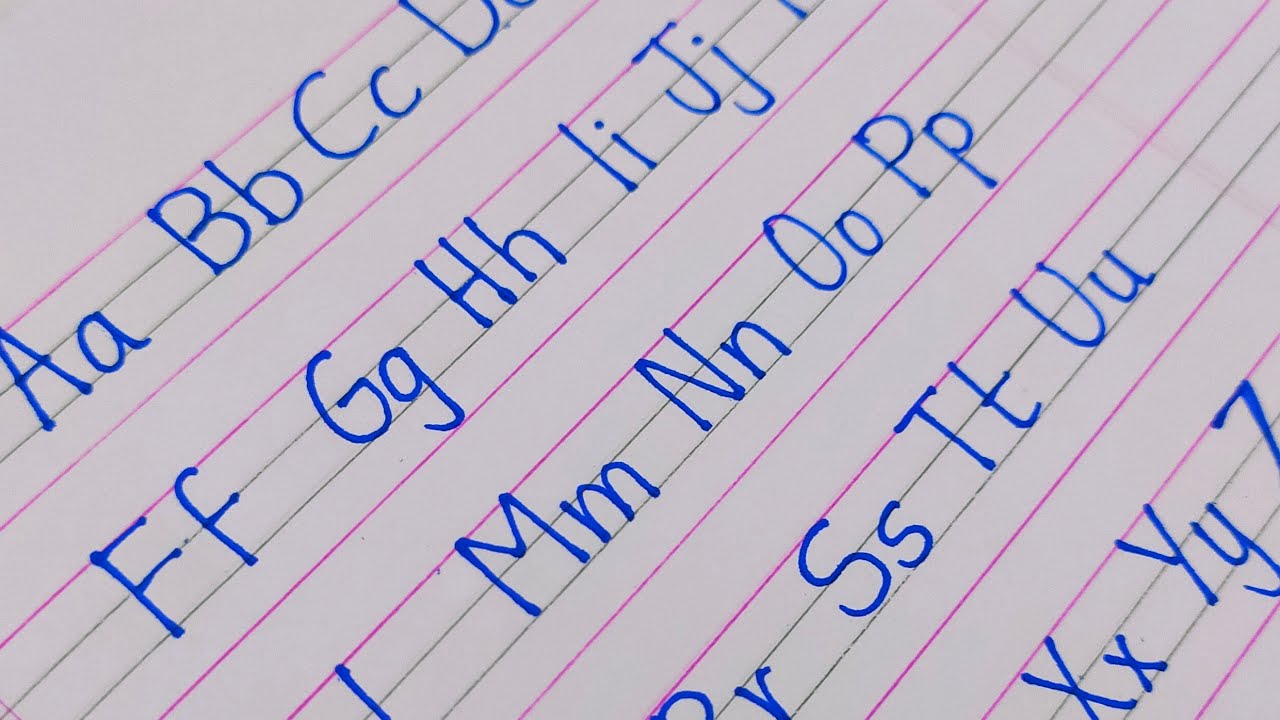 Aa Bb Cc D
Ff Gg Hh Ii Jj
Mm Nn Oo Pp
Rr Ss Tt Uu
Xx Yy Z